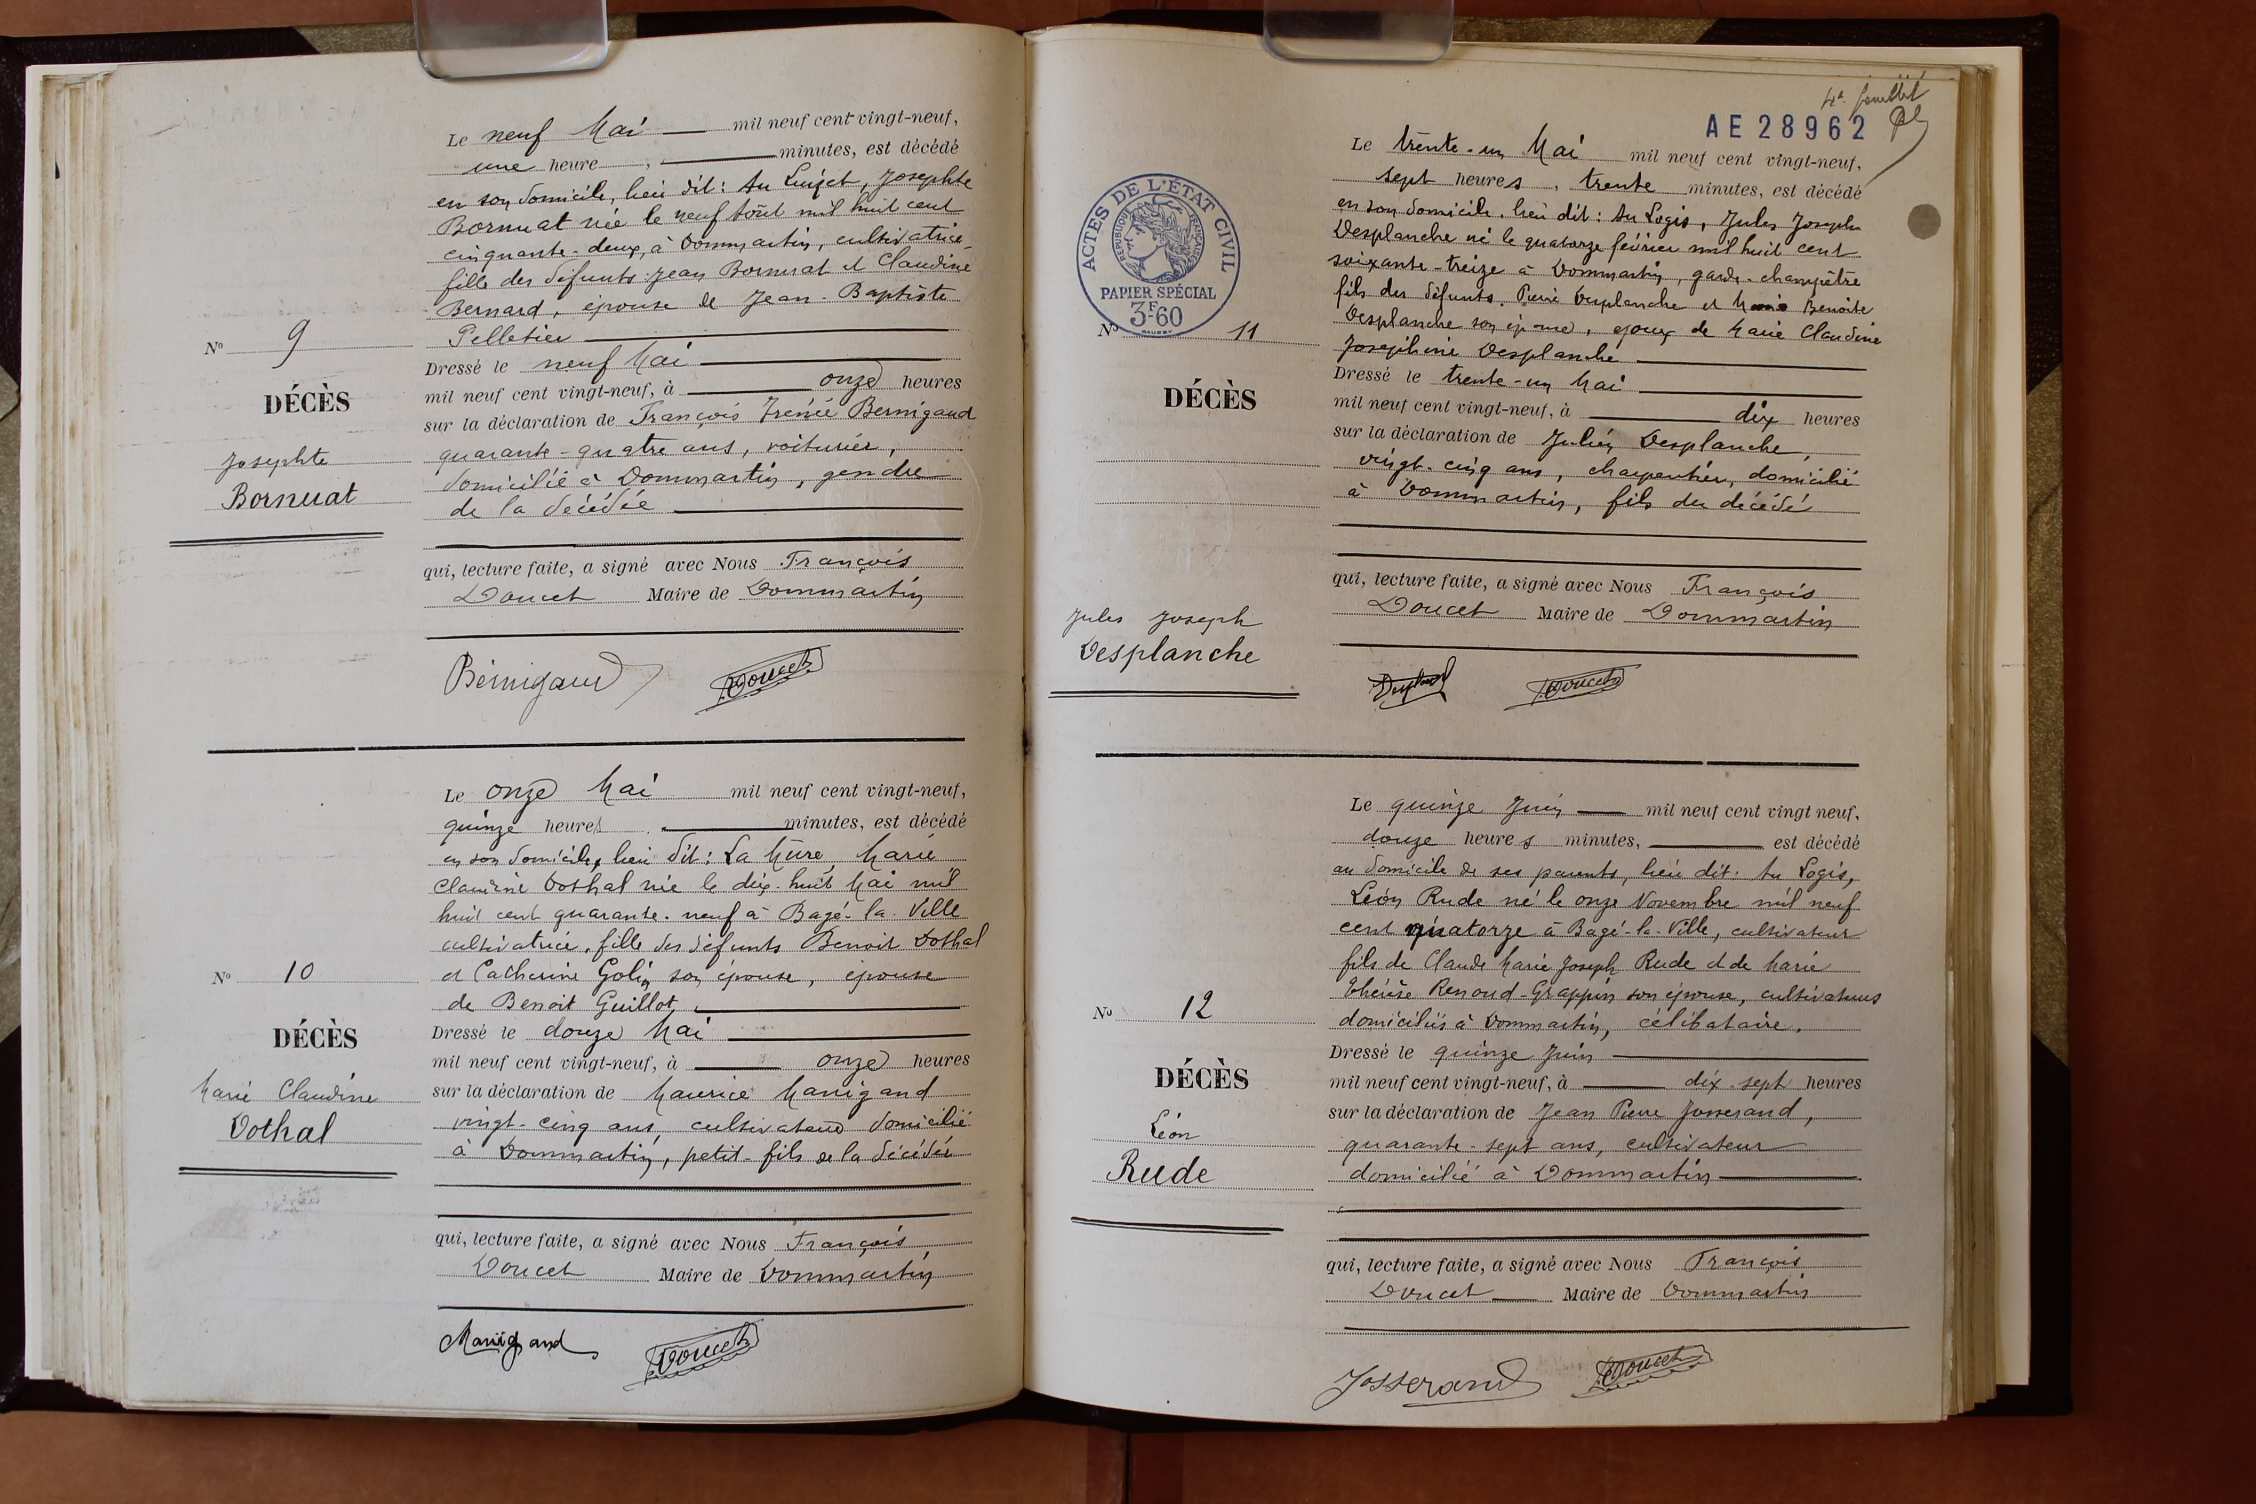 Le neuf Mai mil neuf cent vingt-neuf,
une heure, minutes, est décédé
en son domicile, lieu dit: Au Luizet, Josephte
Bornuat née le neuf Août mil huit cent
cinquante-deux, à Dommartin, cultivatrice,
fille des défunts: Jean Bornuat et Claudine
Bernard, épouse de Jean-Baptiste
Pelletier
No 9
Dressé le neuf Mai
DÉCÈS
mil neuf cent vingt-neuf, à onze heures
sur la déclaration de François Irénée Bernigaud
Josephte
quarante-quatre ans, voiturier,
Bornuat
domicilié à Dommartin, gendre
de la décédée
qui, lecture faite, a signé avec Nous François
Doucet Maire de Dommartin
Bernigaud Doucet
Le onze Mai mil neuf cent vingt-neuf,
quinze heures, minutes, est décédé
en son domicile, lieu dit: La Mure, Marie
Claudine Dothal née le dix-huit Mai mil
huit cent quarante-neuf à Bagé-la-Ville
cultivatrice, fille des défunts Benoit Dothal
No 10
et Catherine Golin son épouse, épouse
de Benoit Guillot
DÉCÈS
Dressé le douze Mai
mil neuf cent vingt-neuf, à onze heures
Marie Claudine
sur la déclaration de Maurice Manigand
Dothal
vingt-cinq ans, cultivateur domicilié
à Dommartin, petit-fils de la décédée
qui, lecture faite, a signé avec Nous François
Doucet Maire de Dommartin
Manigand Doucet
4e feuillet
AE 28962
ACTES DE L'ÉTAT CIVIL
RÉPUBLIQUE FRANÇAISE
PAPIER SPÉCIAL
3F60
Le trente-un Mai mil neuf cent vingt-neuf,
sept heures, trente minutes, est décédé
en son domicile, lieu dit: Au Logis, Jules Joseph
Desplanche né le quatorze février mil huit cent
soixante-treize à Dommartin, garde-champêtre
fils des défunts Pierre Desplanche et Benoite
No 11
Desplanche son épouse, époux de Marie Claudine
Josephine Desplanche
DÉCÈS
Dressé le trente-un Mai
mil neuf cent vingt-neuf, à dix heures
sur la déclaration de Julien Desplanche,
vingt-cinq ans, charpentier, domicilié
à Dommartin, fils du décédé
qui, lecture faite, a signé avec Nous François
Jules Joseph
Doucet Maire de Dommartin
Desplanche
Doucet
Le quinze Juin mil neuf cent vingt neuf,
douze heures minutes, est décédé
au domicile de ses parents, lieu dit: Au Logis,
Léon Rude né le onze Novembre mil neuf
cent quatorze à Bagé-la-Ville, cultivateur
fils de Claude Marie Joseph Rude et de Marie
Thérèse Renoud-Grappin son épouse, cultivateurs
No 12
domiciliés à Dommartin, célibataire.
Dressé le quinze Juin
DÉCÈS
mil neuf cent vingt-neuf, à dix-sept heures
sur la déclaration de Jean Pierre Josserand,
Léon
quarante-sept ans, cultivateur
Rude
domicilié à Dommartin
qui, lecture faite, a signé avec Nous François
Doucet Maire de Dommartin
Josserand Doucet